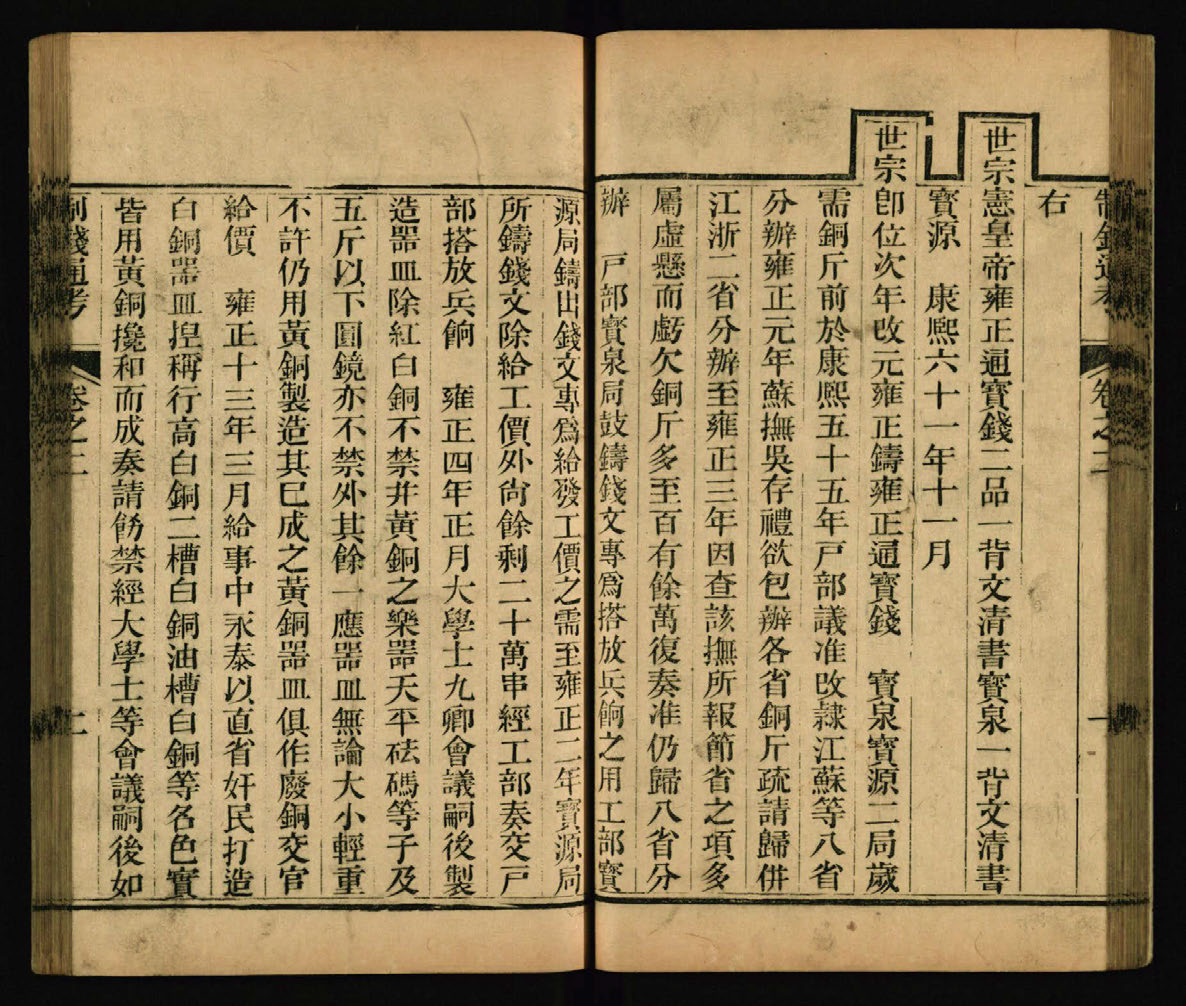 制錢通考 卷之二 一
右
世宗憲皇帝雍正通寳錢二品一背文清書寳泉一背文清書
寳源 康熙六十一年十一月
世宗卽位次年改元雍正鑄雍正通寳錢 寳泉寳源二局歲
需銅斤前於康熙五十五年戸部議准改隷江蘇等八省
分辦雍正元年蘇撫吳存禮欲包辦各省銅斤疏請歸併
江浙二省分辦至雍正三年因查該撫所報節省之項多
屬虛懸而虧欠銅斤多至百有餘萬復奏准仍歸八省分
辦 戸部寳泉局鼓鑄錢文專爲搭放兵餉之用工部寳
源局鑄出錢文專爲給發工價之需至雍正二年寳源局
所鑄錢文除給工價外尙餘剩二十萬串經工部奏交戸
部搭放兵餉 雍正四年正月大學士九卿會議嗣後製
造器皿除紅白銅不禁并黃銅之樂器天平砝碼等子及
五斤以下圓鏡亦不禁外其餘一應器皿無論大小輕重
不許仍用黃銅製造其已成之黃銅器皿俱作廢銅交官
給價 雍正十三年三月給事中永泰以直省奸民打造
白銅器皿揑稱行高白銅二槽白銅油槽白銅等名色實
皆用黃銅攙和而成奏請飭禁經大學士等會議嗣後如
制錢通考 卷之二 二